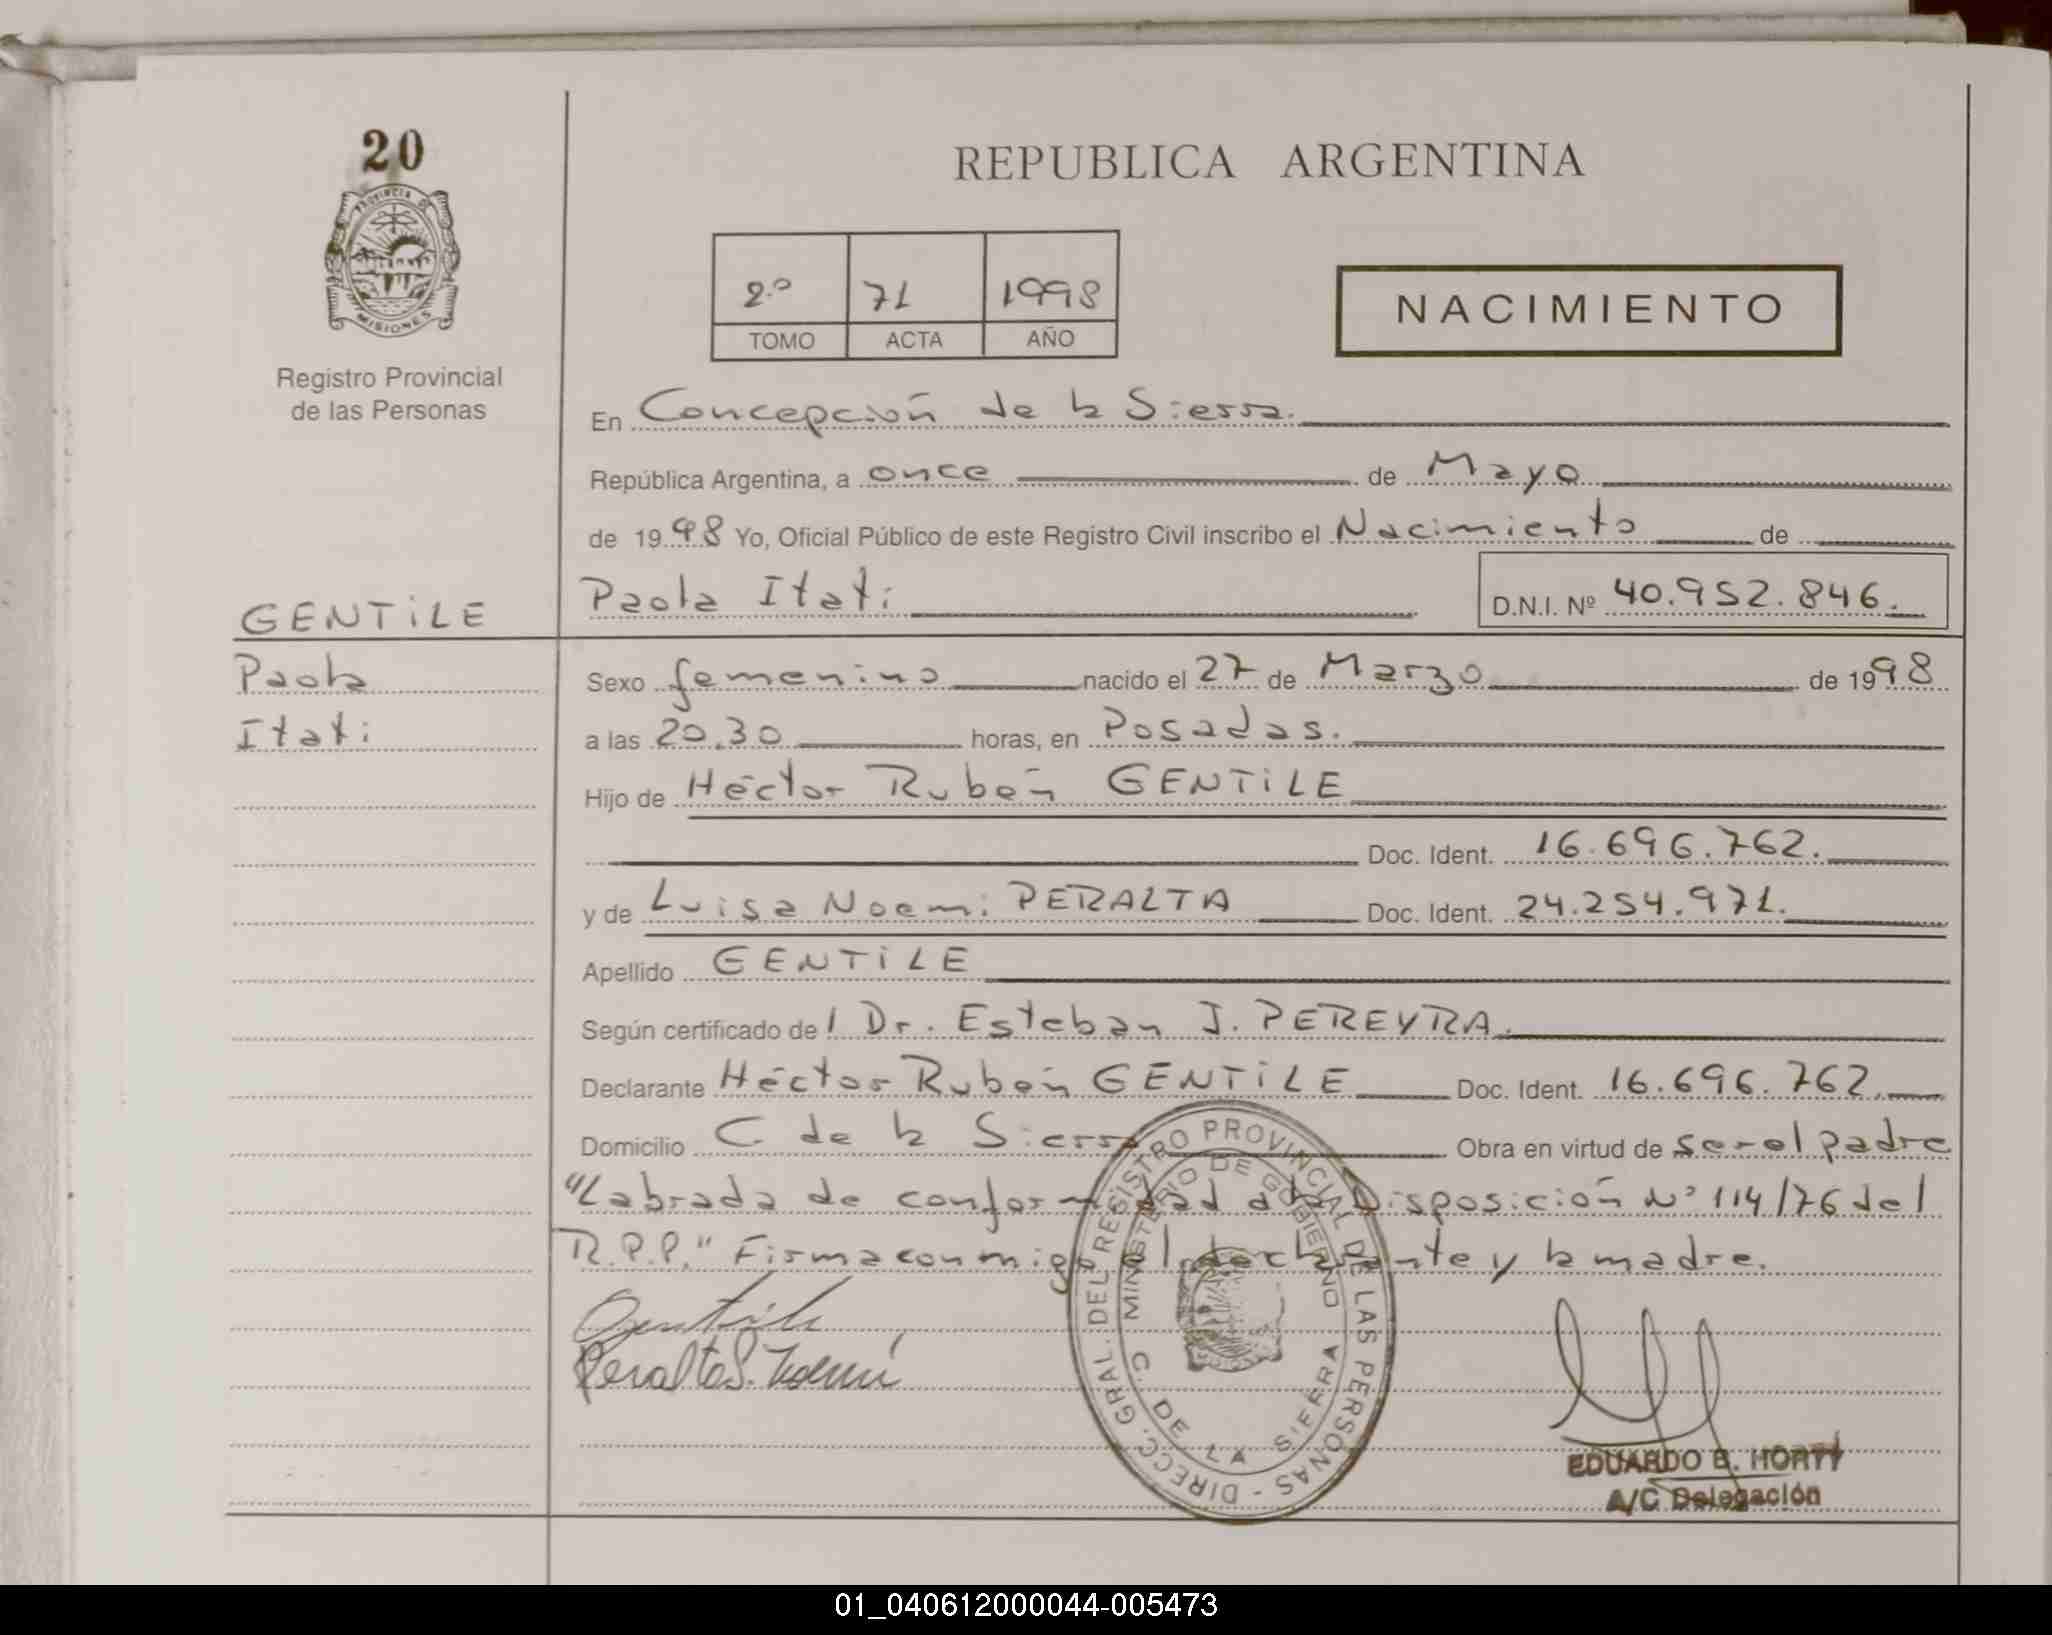 20
PROVINCIA DE
MISIONES
Registro Provincial
de las Personas
REPUBLICA ARGENTINA
2º 71 1998
TOMO ACTA AÑO
NACIMIENTO
En Concepción de la Sierra.
República Argentina, a once de Mayo
de 1998 Yo, Oficial Público de este Registro Civil inscribo el Nacimiento de
GENTiLE Paola Itati D.N.I. Nº 40.952.846.
Paola Sexo femenino nacido el 27 de Marzo de 1998
Itati a las 20.30 horas, en Posadas.
Hijo de Héctor Rubén GENTiLE
Doc. Ident. 16.696.762.
y de Luisa Noemi PERALTA Doc. Ident. 24.254.971.
Apellido GENTiLE
Según certificado del Dr. Esteban J. PEREYRA.
Declarante Héctor Rubén GENTiLE Doc. Ident. 16.696.762.
Domicilio C. de la Sierra Obra en virtud de ser el padre
"Labrada de conformidad a la Disposición Nº 114/76 del
R.P.P." Firma conmigo el declarante y la madre.
Gentile
Peralta L. Noemí
DIRECC. GRAL. DEL REGISTRO PROVINCIAL DE LAS PERSONAS -
MINISTERIO DE GOBIERNO
C. DE LA SIERRA
EDUARDO B. HORTT
A/C Delegación
01_040612000044-005473